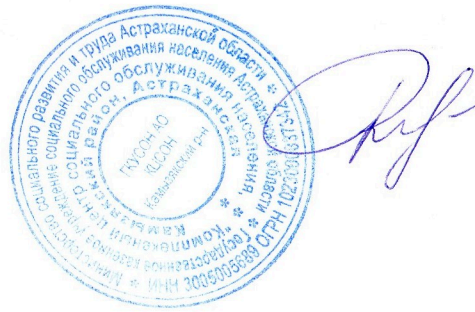 Министерство социального развития и труда Астраханской области *
ИНН 3005005689 ОГРН
Государственное казенное учреждение социального обслуживания населения Астраханской области
"Комплексный центр социального обслуживания населения,
Камызякский район, Астраханская
ГКУСОН АО
КЦСОН
Камызякский р-н